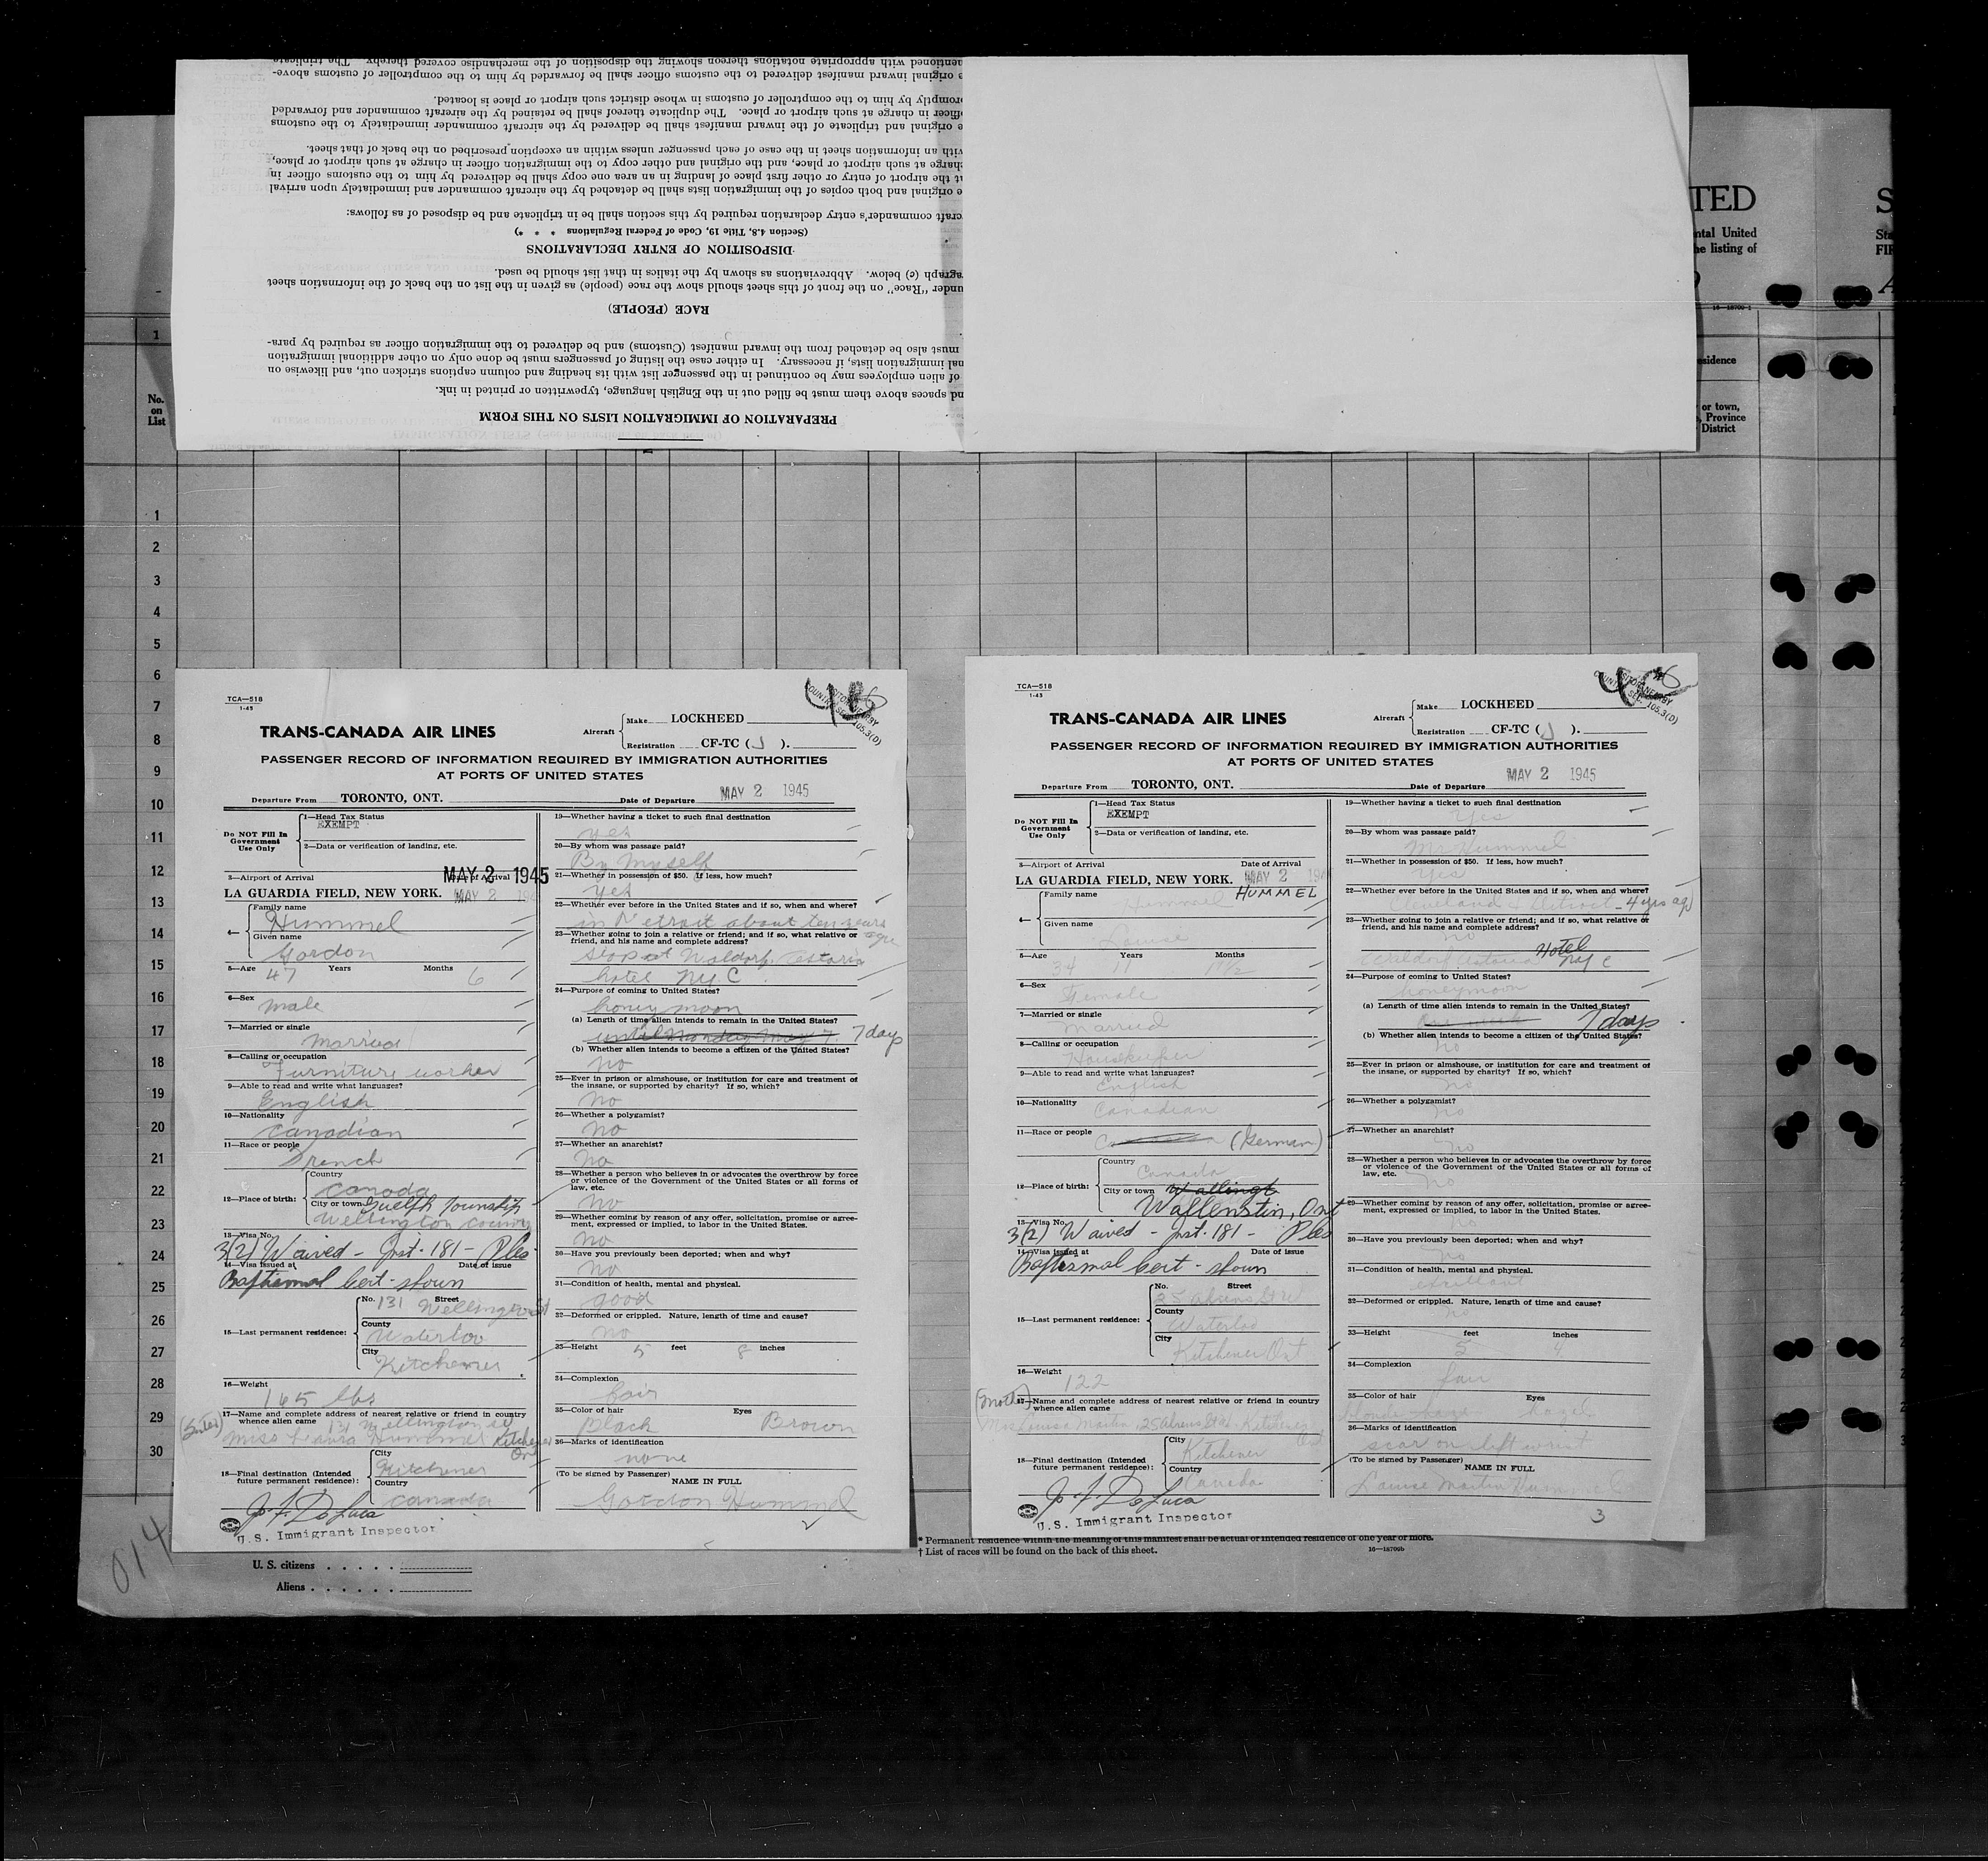 PREPARATION OF IMMIGRATION LISTS ON THIS FORM
nd spaces above them must be filled out in the English language, typewritten or printed in ink.
of alien employees may be continued in the passenger list with its heading and column captions stricken out, and likewise on
nal immigration lists, if necessary. In either case the listing of passengers must be done only on other additional immigration
must also be detached from the inward manifest (Customs) and be delivered to the immigration officer as required by para-
RACE (PEOPLE)
under "Race" on the front of this sheet should show the race (people) as given in the list on the back of the information sheet
agraph (c) below. Abbreviations as shown by the italics in that list should be used.
DISPOSITION OF ENTRY DECLARATIONS
(Section 4.8, Title 19, Code of Federal Regulations * * *)
craft commander's entry declaration required by this section shall be in triplicate and be disposed of as follows:
e original and both copies of the immigration lists shall be detached by the aircraft commander and immediately upon arrival
at the airport of entry or other first place of landing in an area one copy shall be delivered by him to the customs officer in
charge at such airport or place, and the original and other copy to the immigration officer in charge at such airport or place,
with an information sheet in the case of each passenger unless within an exception prescribed on the back of that sheet.
e original and triplicate of the inward manifest shall be delivered by the aircraft commander immediately to the customs
officer in charge at such airport or place. The duplicate thereof shall be retained by the aircraft commander and forwarded
romptly by him to the comptroller of customs in whose district such airport or place is located.
e original inward manifest delivered to the customs officer shall be forwarded by him to the comptroller of customs above-
mentioned with appropriate notations thereon showing the disposition of the merchandise covered thereby. The triplicate
TED
ntal United
he listing of
16—18709-1
esidence
or town,
, Province
District
S
Sta
FIR
A
1
No.
on
List
1
2
3
4
5
6
7
8
9
10
11
12
13
14
15
16
17
18
19
20
21
22
23
24
25
26
27
28
29
30
TCA—518
1-43
TRANS-CANADA AIR LINES
Aircraft
Make LOCKHEED
Registration CF-TC ( J ).
PASSENGER RECORD OF INFORMATION REQUIRED BY IMMIGRATION AUTHORITIES
AT PORTS OF UNITED STATES
MAY 2 1945
Departure From TORONTO, ONT. Date of Departure
Do NOT Fill In
Government
Use Only
1—Head Tax Status
EXEMPT
2—Data or verification of landing, etc.
MAY 2 1945
3—Airport of Arrival Date of Arrival
LA GUARDIA FIELD, NEW YORK. MAY 2 194
4—
Family name
Hummel
Given name
Gordon
5—Age 47 Years Months 6
6—Sex
male
7—Married or single
Married
8—Calling or occupation
Furniture worker
9—Able to read and write what languages?
English
10—Nationality
Canadian
11—Race or people
French
12—Place of birth:
Country
Canada
City or town Guelph Township
Wellington County
13—Visa No.
3(2) Waived - Inst. 181 -
14—Visa issued at Date of issue
Baptismal Cert - shown
15—Last permanent residence:
No. 131 Street Wellington St
County
Waterloo
City
Kitchener
16—Weight
165 lbs
17—Name and complete address of nearest relative or friend in country
whence alien came
(Sister) 131 Wellington st
Miss Laura Hummel Kitchener
Ont
18—Final destination (Intended
future permanent residence):
City
Kitchener
Country
Canada
J. F. De Luca
U.S. Immigrant Inspector
19—Whether having a ticket to such final destination
yes
20—By whom was passage paid?
By Myself
21—Whether in possession of $50. If less, how much?
yes
22—Whether ever before in the United States and if so, when and where?
in Detroit about ten years
ago
23—Whether going to join a relative or friend; and if so, what relative or
friend, and his name and complete address?
stop at Waldorf Astoria
hotel NY C
24—Purpose of coming to United States?
honey moon
(a) Length of time alien intends to remain in the United States?
until Monday May 7. 7 days
(b) Whether alien intends to become a citizen of the United States?
no
25—Ever in prison or almshouse, or institution for care and treatment of
the insane, or supported by charity? If so, which?
No
26—Whether a polygamist?
no
27—Whether an anarchist?
No
28—Whether a person who believes in or advocates the overthrow by force
or violence of the Government of the United States or all forms of
law, etc.
No
29—Whether coming by reason of any offer, solicitation, promise or agree-
ment, expressed or implied, to labor in the United States.
No
30—Have you previously been deported; when and why?
no
31—Condition of health, mental and physical.
good
32—Deformed or crippled. Nature, length of time and cause?
no
33—Height 5 feet 8 inches
34—Complexion
fair
35—Color of hair Eyes
Black Brown
36—Marks of identification
none
(To be signed by Passenger)
NAME IN FULL
Gordon Hummel
TCA—518
1-43
TRANS-CANADA AIR LINES
Aircraft
Make LOCKHEED
Registration CF-TC ( J ).
PASSENGER RECORD OF INFORMATION REQUIRED BY IMMIGRATION AUTHORITIES
AT PORTS OF UNITED STATES
MAY 2 1945
Departure From TORONTO, ONT. Date of Departure
Do NOT Fill In
Government
Use Only
1—Head Tax Status
EXEMPT
2—Data or verification of landing, etc.
3—Airport of Arrival Date of Arrival
LA GUARDIA FIELD, NEW YORK. MAY 2 194
4—
Family name HUMMEL
Hummel
Given name
Louise
5—Age Years Months
34 11 11½
6—Sex
Female
7—Married or single
Married
8—Calling or occupation
Housekeeper
9—Able to read and write what languages?
English
10—Nationality
Canadian
11—Race or people
(German)
12—Place of birth:
Country
Canada
City or town
Wallenstin, Ont
13—Visa No.
3(2) Waived - Inst. 181 -
14—Visa issued at Date of issue
Baptismal Cert - shown
15—Last permanent residence:
No. Street
25 Ahrens St W
County
Waterloo
City
Kitchener Ont
16—Weight
122
17—Name and complete address of nearest relative or friend in country
whence alien came
Louise Martin 25 Ahrens St W. Kitchener
Ont
18—Final destination (Intended
future permanent residence):
City
Kitchener
Country
Canada
J. F. De Luca
U.S. Immigrant Inspector
19—Whether having a ticket to such final destination
Yes
20—By whom was passage paid?
Mr Hummel
21—Whether in possession of $50. If less, how much?
Yes
22—Whether ever before in the United States and if so, when and where?
Cleveland & Detroit - 4 yrs ago
23—Whether going to join a relative or friend; and if so, what relative or
friend, and his name and complete address?
no
Waldorf Astoria Hotel
NYC
24—Purpose of coming to United States?
honeymoon
(a) Length of time alien intends to remain in the United States?
One week 7 days
(b) Whether alien intends to become a citizen of the United States?
no
25—Ever in prison or almshouse, or institution for care and treatment of
the insane, or supported by charity? If so, which?
no
26—Whether a polygamist?
no
27—Whether an anarchist?
no
28—Whether a person who believes in or advocates the overthrow by force
or violence of the Government of the United States or all forms of
law, etc.
no
29—Whether coming by reason of any offer, solicitation, promise or agree-
ment, expressed or implied, to labor in the United States.
no
30—Have you previously been deported; when and why?
no
31—Condition of health, mental and physical.
excellent
32—Deformed or crippled. Nature, length of time and cause?
no
33—Height feet inches
5 4
34—Complexion
fair
35—Color of hair Eyes
hazel
36—Marks of identification
scar on left wrist
(To be signed by Passenger)
NAME IN FULL
Louise Martin Hummel
3
* Permanent residence within the meaning of this manifest shall be actual or intended residence of one year or more.
† List of races will be found on the back of this sheet. 16—18709b
U. S. citizens
Aliens
014